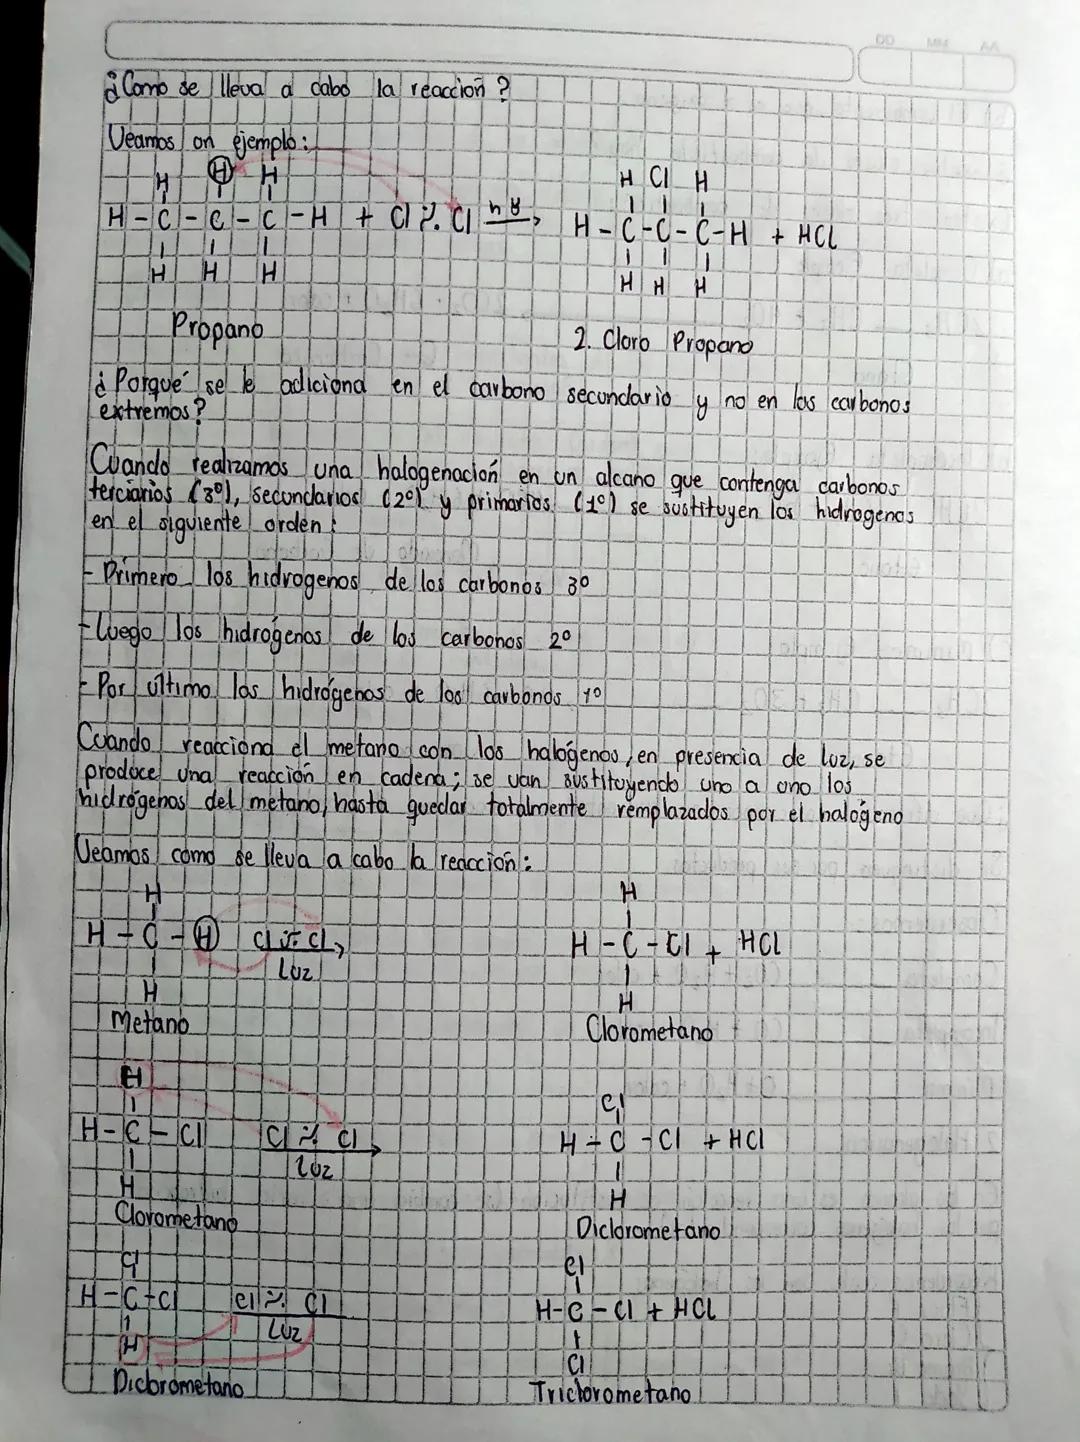 AA MM DD
¿Como se lleva a cabo la reaccion?
Veamos un ejemplo:
H H H
H - C - C - C - H + Cl ⁒ Cl → H - C - C - C - H + HCL
H Cl H
H H H
H H H
Propano
2. Cloro Propano
¿Porqué se le adiciona en el carbono secundario y no en los carbonos
extremos?
Cuando realizamos una halogenación en un alcano que contenga carbonos
terciarios (3º), secundarios (2º) y primarios (1º) se sustituyen los hidrogenos
en el siguiente orden:
- Primero los hidrogenos de los carbonos 3º
- Luego los hidrógenos de los carbonos 2º
- Por último los hidrógenos de los carbonos 1º
Cuando reacciona el metano con los halógenos, en presencia de luz, se
produce una reacción en cadena; se van sustituyendo uno a uno los
hidrógenos del metano, hasta quedar totalmente remplazados por el halógeno
Veamos como se lleva a cabo la reacción:
H H
H - C - H Cl ⁒ Cl → H - C - Cl + HCL
Luz
H H
Metano Clorometano
H Cl
H - C - Cl Cl ⁒ Cl → H - C - Cl + HCl
luz
H H
Clorometano Diclorometano
Cl Cl
H - C - Cl Cl ⁒ Cl H - C - Cl + HCL
Luz
H Cl
Diclorometano Triclorometano